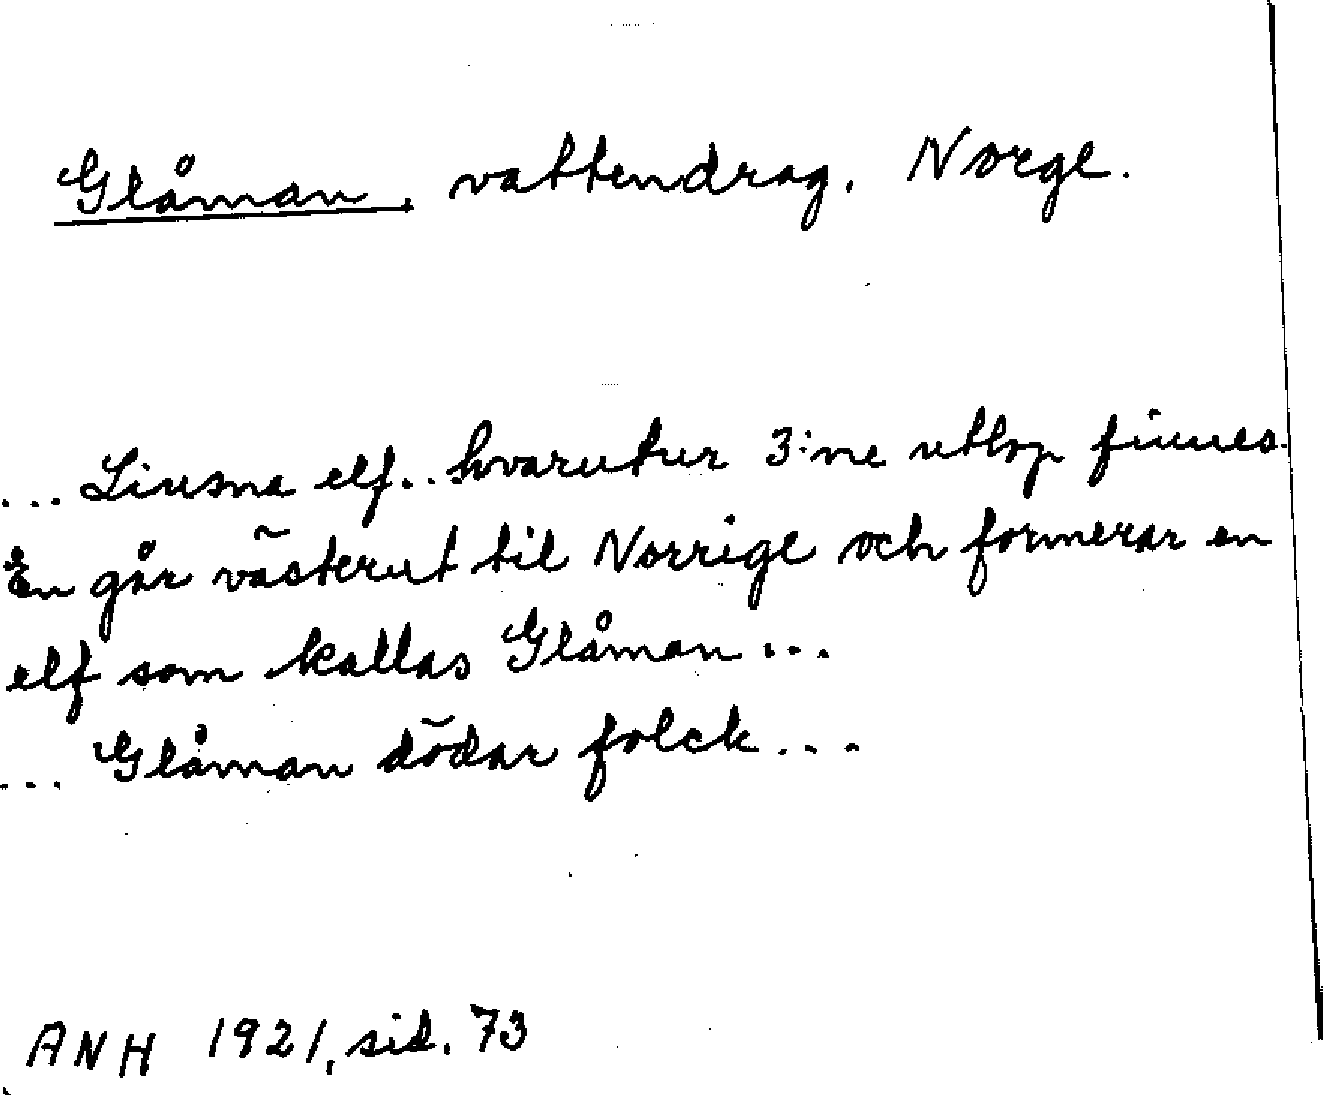 Glåman, vattendrag, Norge.
... Liusna elf.. hvarutur 3:ne utlop finnes.
En går västerut til Norrige och formerar en
elf som kallas Glåman...
... Glåman dödar folck...
ANH 1921, sid. 73